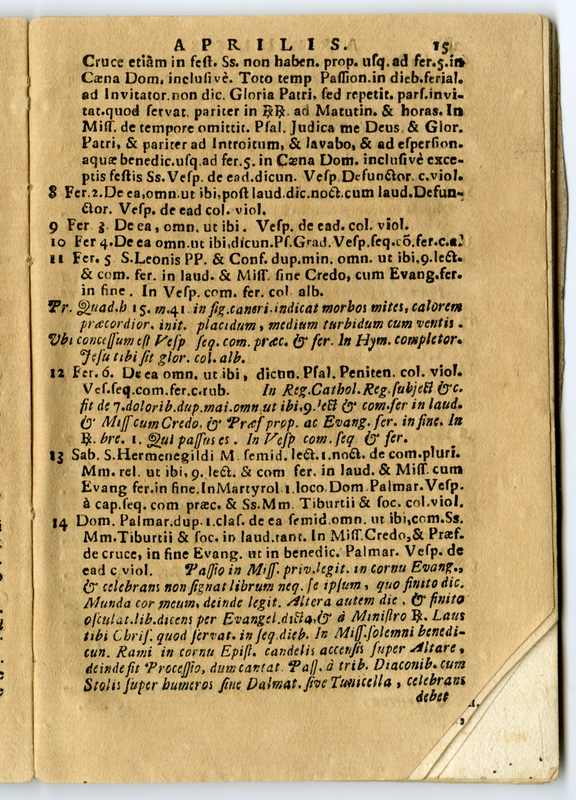 APRILIS. 15
Cruce etiàm in feſt. Ss. non haben. prop. uſq. ad fer.5.in
Cæna Dom. incluſivè. Toto temp Paſſion.in dieb.ferial.
ad Invitator.non dic. Gloria Patri, ſed repetit. parſ.invi-
tat.quod ſervat. pariter in ℟℟. ad Matutin. & horas. In
Miſſ. de tempore omittit. Pſal. Judica me Deus & Glor.
Patri, & pariter ad Introitum, & lavabo, & ad eſperſion.
aquæ benedic.uſq.ad fer.5. in Cæna Dom. incluſivè exce-
ptis feſtis Ss. Veſp. de ead.dicun. Veſp Defunctor. c.viol.
8 Fer.2. De ea,omn.ut ibi,poſt laud.dic.noct.cum laud.Defun-
ctor. Veſp. de ead col. viol.
9 Fer 3. De ea, omn. ut ibi. Veſp. de ead. col. viol.
10 Fer 4.De ea omn.ut ibi,dicun.Pſ.Grad.Veſp.ſeq.cō.fer.c.a.
11 Fer. 5 S.Leonis PP. & Conf. dup.min. omn. ut ibi,9.lect.
& com. fer. in laud. & Miſſ. ſine Credo, cum Evang.fer.
in fine. In Veſp. com. fer. col alb.
Pr. Quad.h 15. m.41. in ſig.cancri.indicat morbos mites, calorem
præcordior. init. placidum, medium turbidum cum ventis.
Vbi conceſſum eſt Veſp ſeq. com. præc. & fer. In Hym. completor.
Jeſu tibi ſit glor. col. alb.
12 Fer. 6. De ea omn. ut ibi, dicun. Pſal. Peniten. col. viol.
Veſ.ſeq.com.fer.c.rub. In Reg.Cathol.Reg.ſubject &c.
fit de 7.dolorib.dup.mai.omn.ut ibi,9.lect & com.fer in laud.
& Miſſ cum Credo. & Præf prop. ac Evang. fer. in fine. In
℟. bre. 1. Qui paſſus es. In Veſp com. ſeq & fer.
13 Sab. S.Hermenegildi M. ſemid. lect.1.noct. de com.pluri.
Mm. rel. ut ibi, 9. lect. & com fer. in laud. & Miſſ. cum
Evang fer.in fine.InMartyrol 1.loco.Dom Palmar.Veſp.
à cap.ſeq. com præc. & Ss.Mm Tiburtii & ſoc. col.viol.
14 Dom. Palmar.dup.1.claſ. de ea ſemid.omn. ut ibi,com.Ss.
Mm.Tiburtii & ſoc. in laud.tant. In Miſſ.Credo,& Præf.
de cruce, in fine Evang. ut in benedic. Palmar. Veſp. de
ead c viol. Paſſio in Miſſ. priv.legit. in cornu Evang.,
& celebrans non ſignat librum neq. ſe ipſum, quo finito dic.
Munda cor meum, deinde legit. Altera autem die, & finito
oſculat.lib.dicens per Evangel.dicta,& à Miniſtro ℟. Laus
tibi Chriſ. quod ſervat. in ſeq.dieb. In Miſſ.ſolemni benedi-
cun. Rami in cornu Epiſt. candelis accenſis ſuper Altare,
deinde fit Proceſſio, dum cantat Paſſ. à trib. Diaconib. cum
Stolis ſuper humeros ſine Dalmat. ſive Tunicella, celebrans
debet